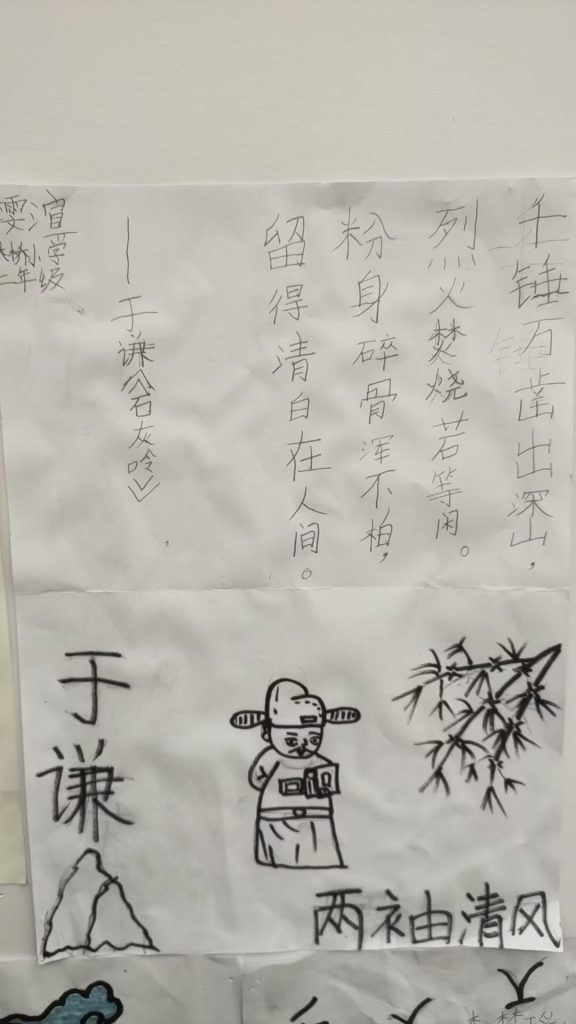 千锤石凿出深山，
烈火焚烧若等闲。
粉身碎骨浑不怕，
留得清白在人间。
——于谦《石灰呤》
雯渲
桥小学
二年级
于谦
两袖清风